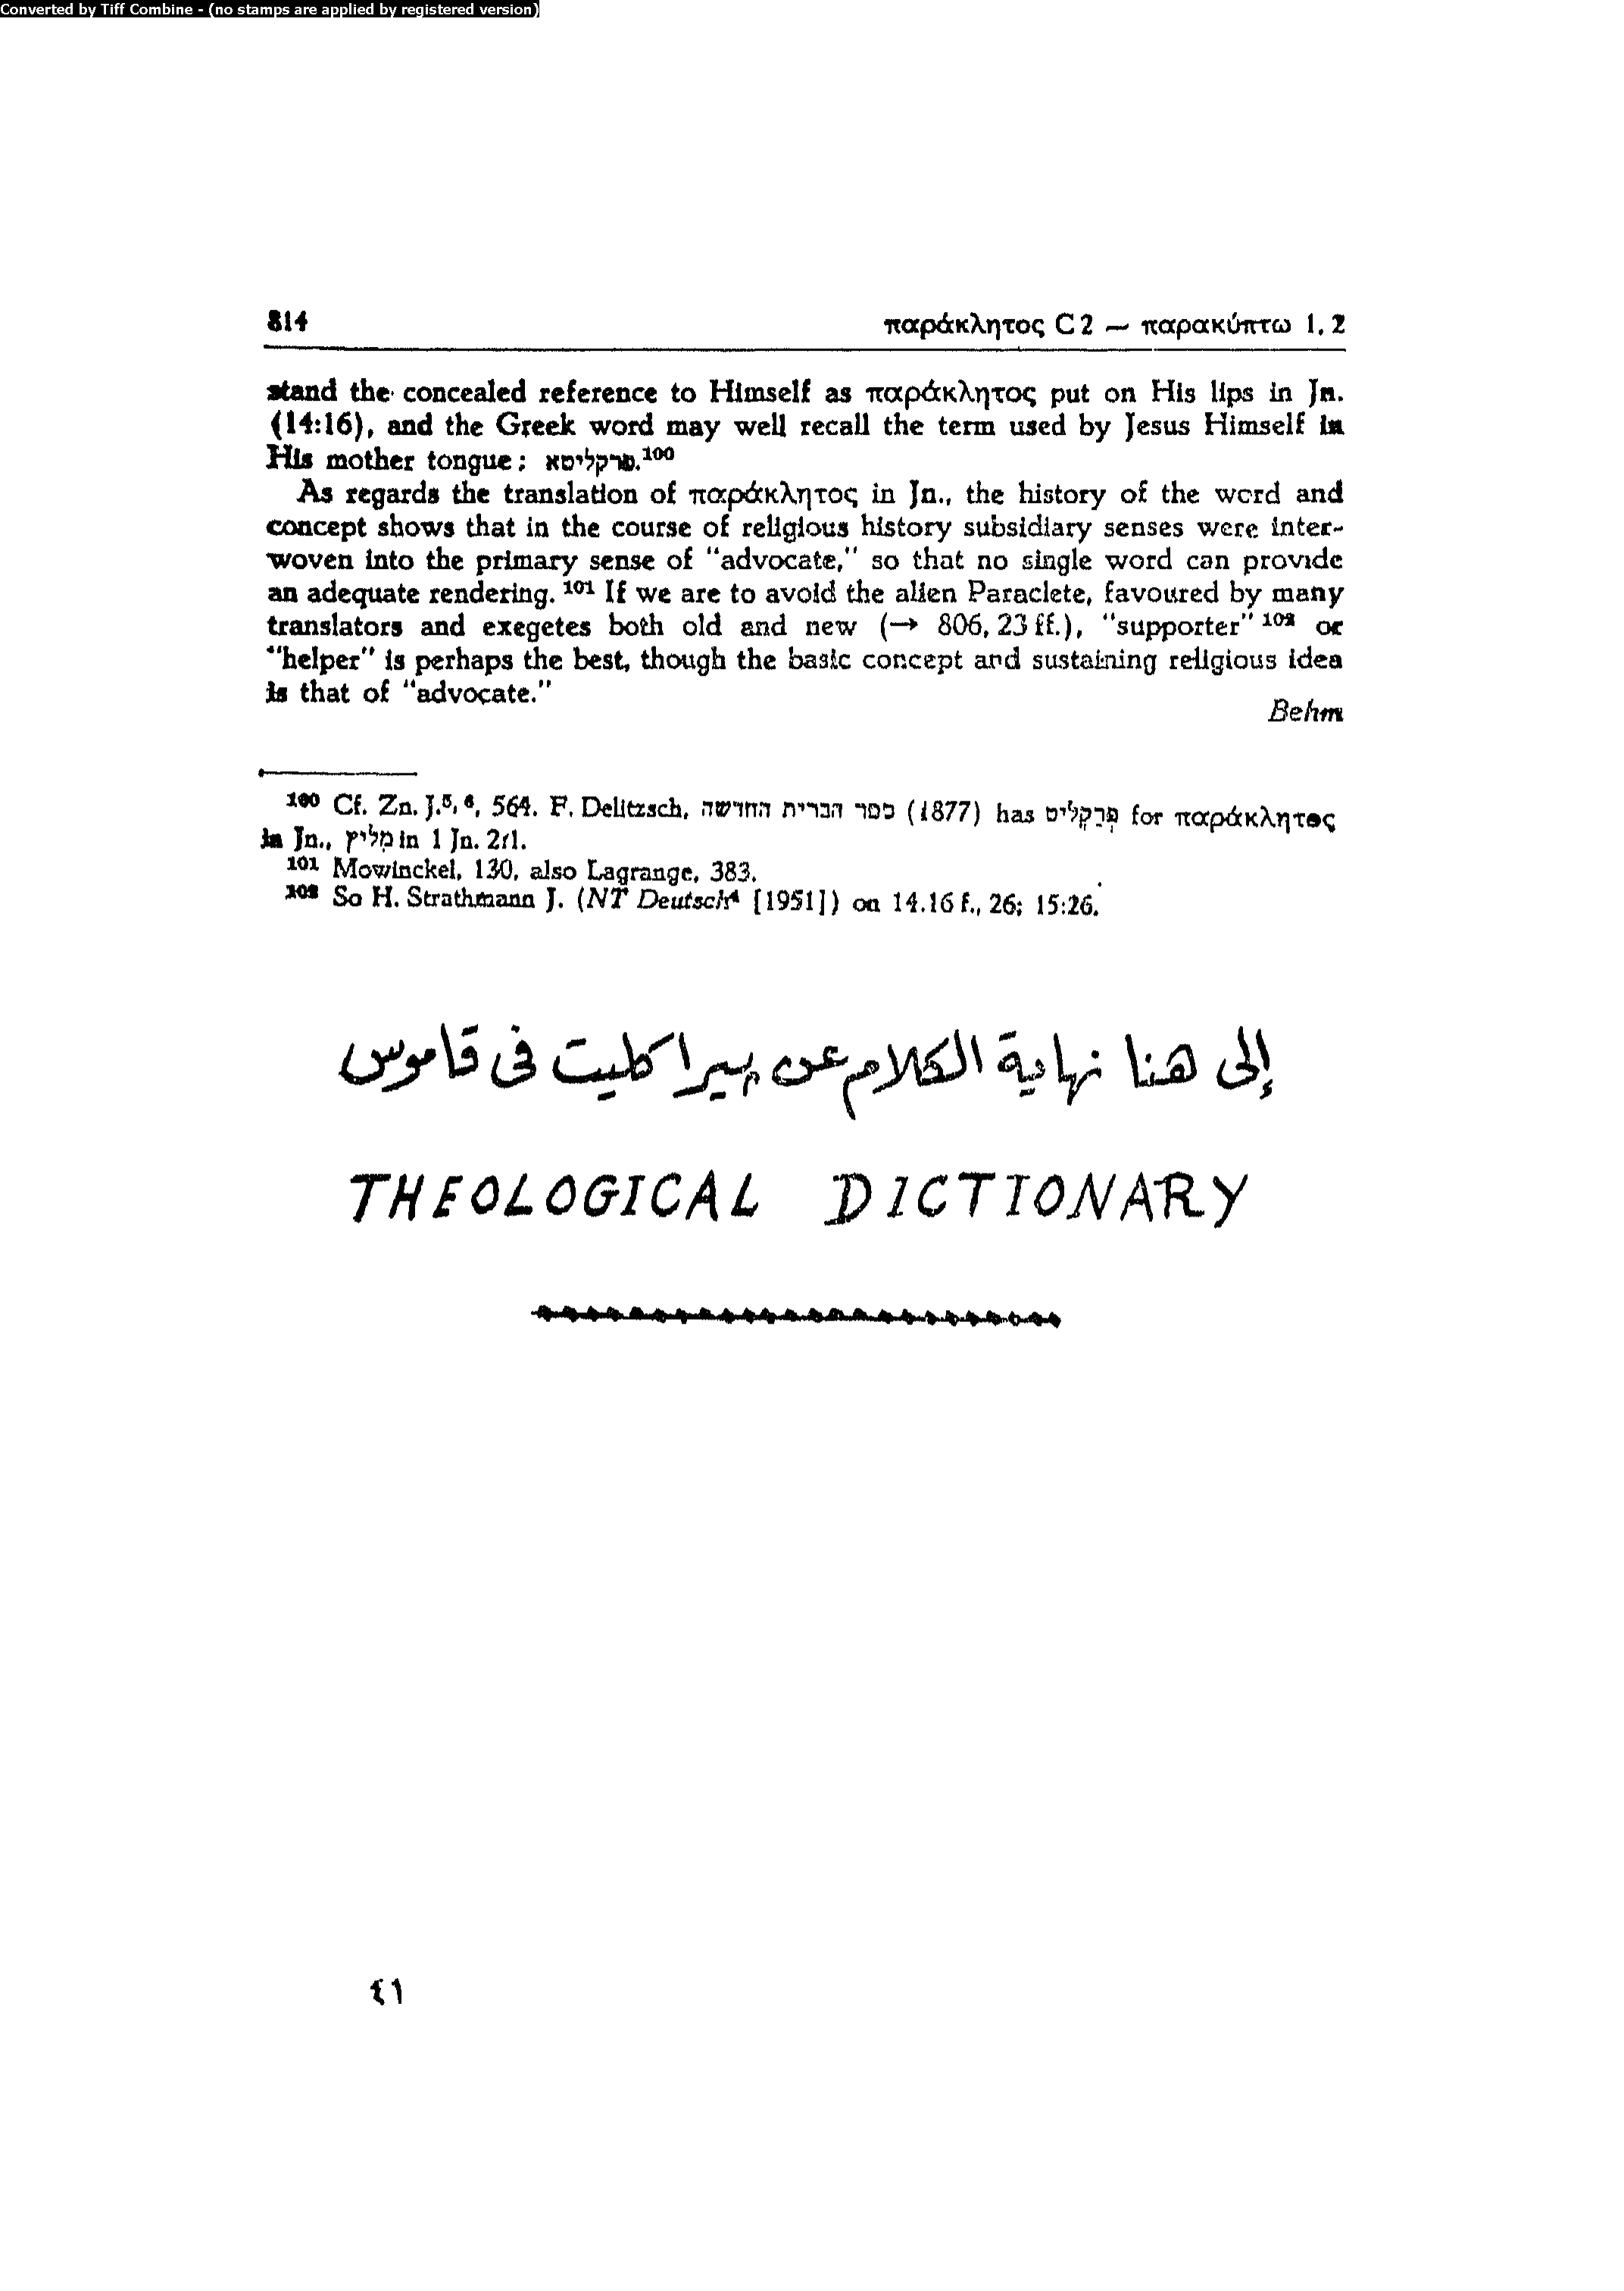 Converted by Tiff Combine - (no stamps are applied by registered version)
814 παράκλητος C 2 — παρακύπτω 1, 2
stand the concealed reference to Himself as παράκλητος put on His lips in Jn.
(14:16), and the Greek word may well recall the term used by Jesus Himself in
His mother tongue: פרקליטא.100
As regards the translation of παράκλητος in Jn., the history of the word and
concept shows that in the course of religious history subsidiary senses were inter-
woven into the primary sense of "advocate," so that no single word can provide
an adequate rendering. 101 If we are to avoid the alien Paraclete, favoured by many
translators and exegetes both old and new (→ 806, 23 ff.), "supporter" 102 or
"helper" is perhaps the best, though the basic concept and sustaining religious idea
is that of "advocate."
Behm
100 Cf. Zn. J.5, 6, 564. F. Delitzsch, ספר הברית החדשה (1877) has פְּרַקְלִיט for παράκλητος
in Jn., מֵלִיץ in 1 Jn. 2:1.
101 Mowinckel, 130, also Lagrange, 383.
102 So H. Strathmann J. (NT Deutsch4 [1951]) on 14.16 f., 26; 15:26.
إلى هنا نهاية الكلام عن پيراكليت فى قاموس
THEOLOGICAL DICTIONARY
٤١